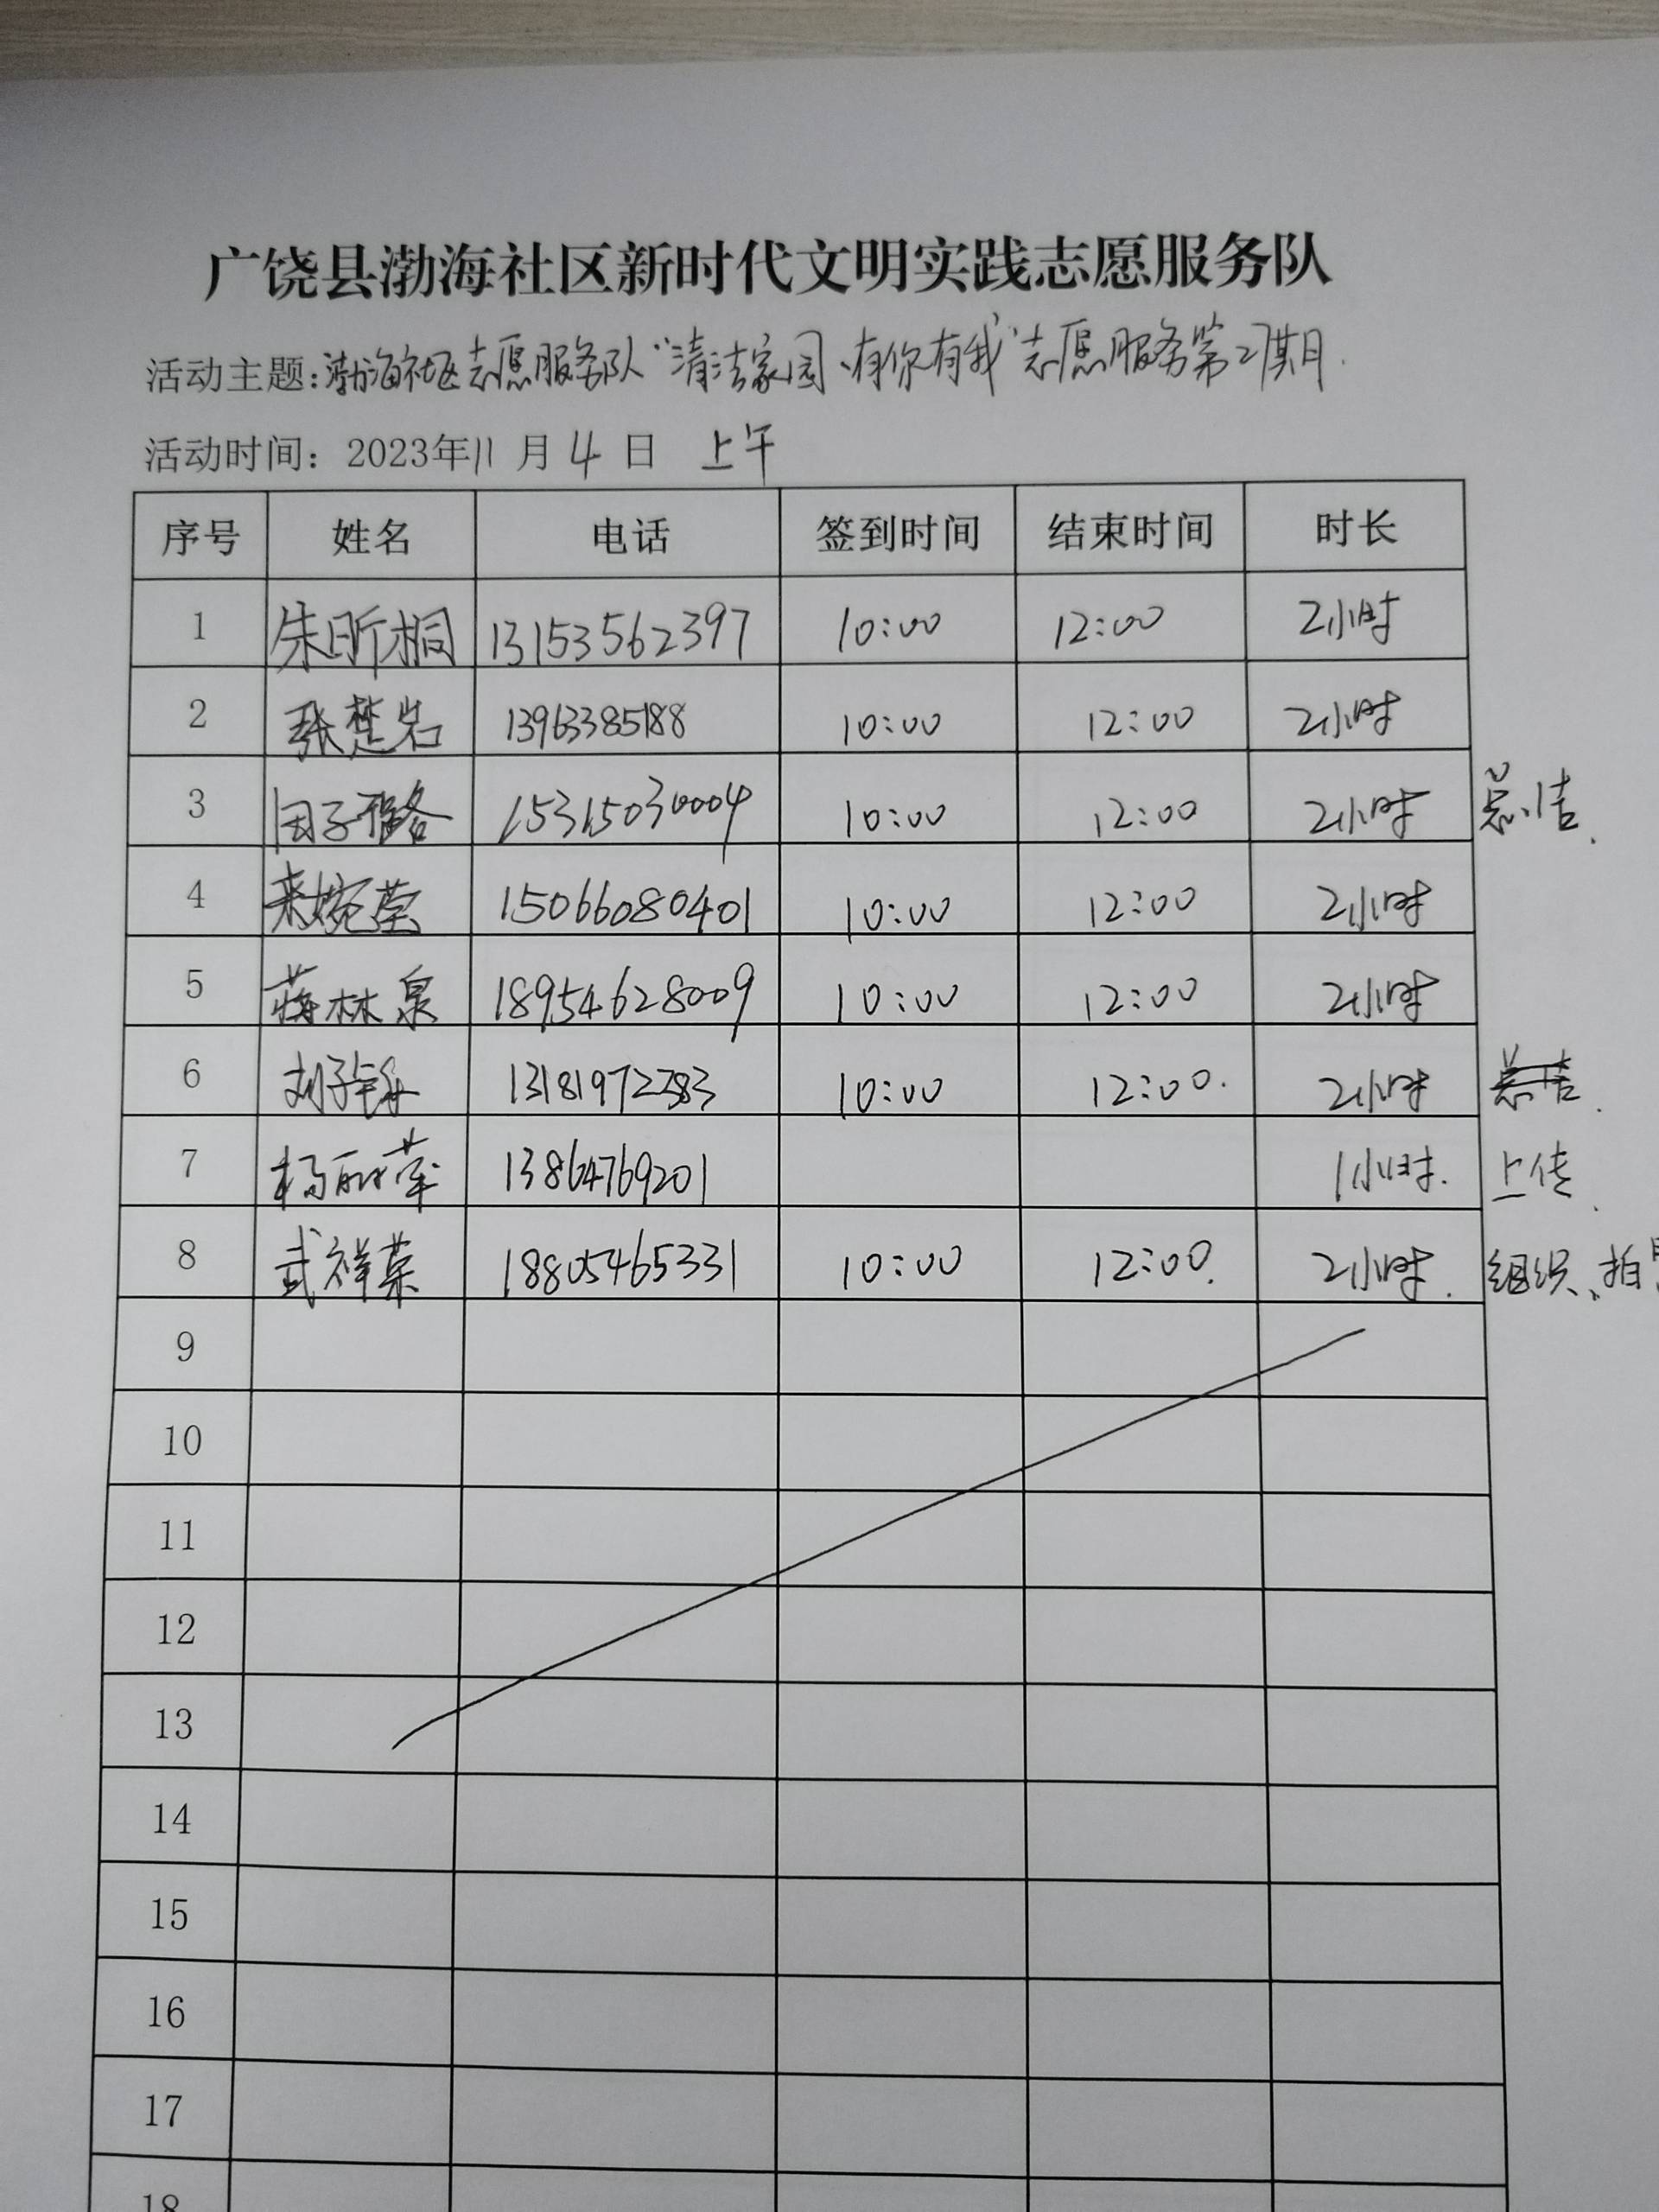 广饶县渤海社区新时代文明实践志愿服务队
活动主题:渤海社区志愿服务队“清洁家园、有你有我”志愿服务第2期.
活动时间: 2023年11月4日 上午
序号 姓名 电话 签到时间 结束时间 时长
1 朱昕桐 13153562397 10:00 12:00 2小时
2 张楚岩 13963385188 10:00 12:00 2小时
3 田子 15315030004 10:00 12:00 2小时 总结.
4 来婉莹 15066080401 10:00 12:00 2小时
5 蒋林泉 18954628009 10:00 12:00 2小时
6 刘子 10:00 12:00. 2小时
7 杨丽萍 13864769201 1小时. 上传.
8 武祥菜 18805465331 10:00 12:00. 2小时. 组织、拍
9
10
11
12
13
14
15
16
17
18